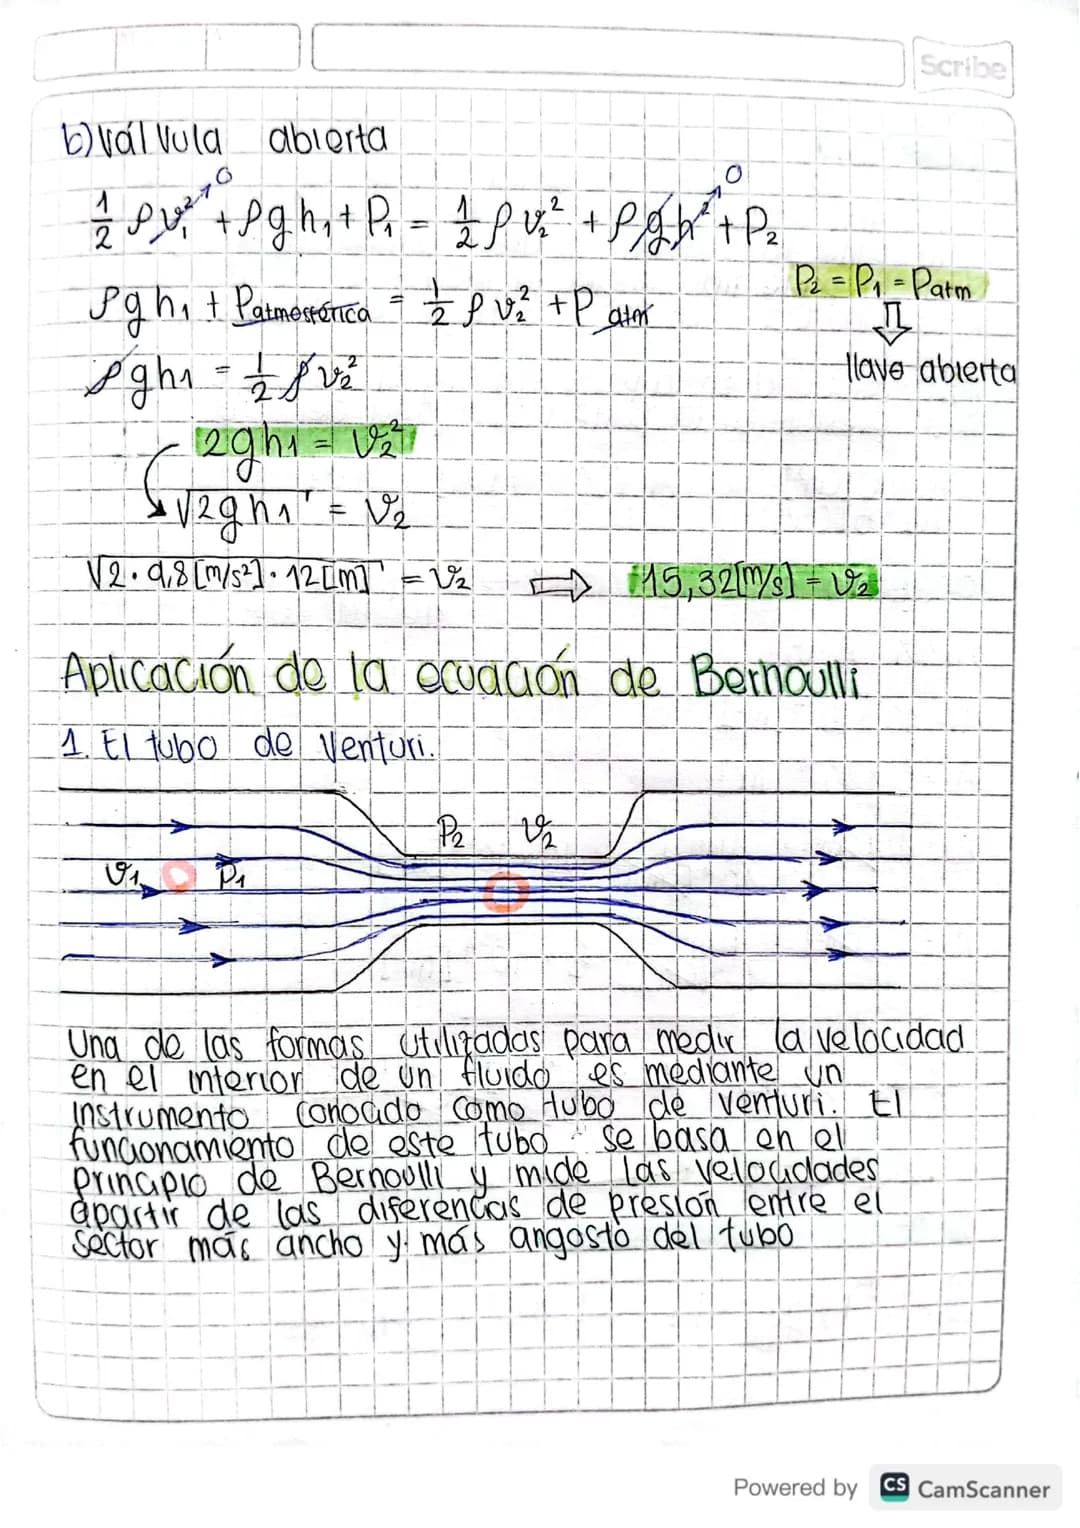 Scribe
b) Válvula abierta
0 0
1/2 ρv₁² + ρgh₁ + P₁ = 1/2 ρv₂² + ρgh² + P₂
P₂ = P₁ = Patm
ρgh₁ + Patmosférica = 1/2 ρv₂² + P atm
llave abierta
ρgh₁ = 1/2 ρv₂²
2gh₁ = v₂²
√2gh₁ = v₂
√2·9,8[m/s²]·12[m] = v₂ ⇨ 15,32[m/s] = v₂
Aplicación de la ecuación de Bernoulli
1. El tubo de Venturi.
P₂ v₂
v₁ P₁
Una de las formas utilizadas para medir la velocidad
en el interior de un fluido es mediante un
instrumento conocido como tubo de venturi. El
funcionamiento de este tubo se basa en el
principio de Bernoulli y mide las velocidades
apartir de las diferencias de presión entre el
sector más ancho y más angosto del tubo
Powered by CS CamScanner